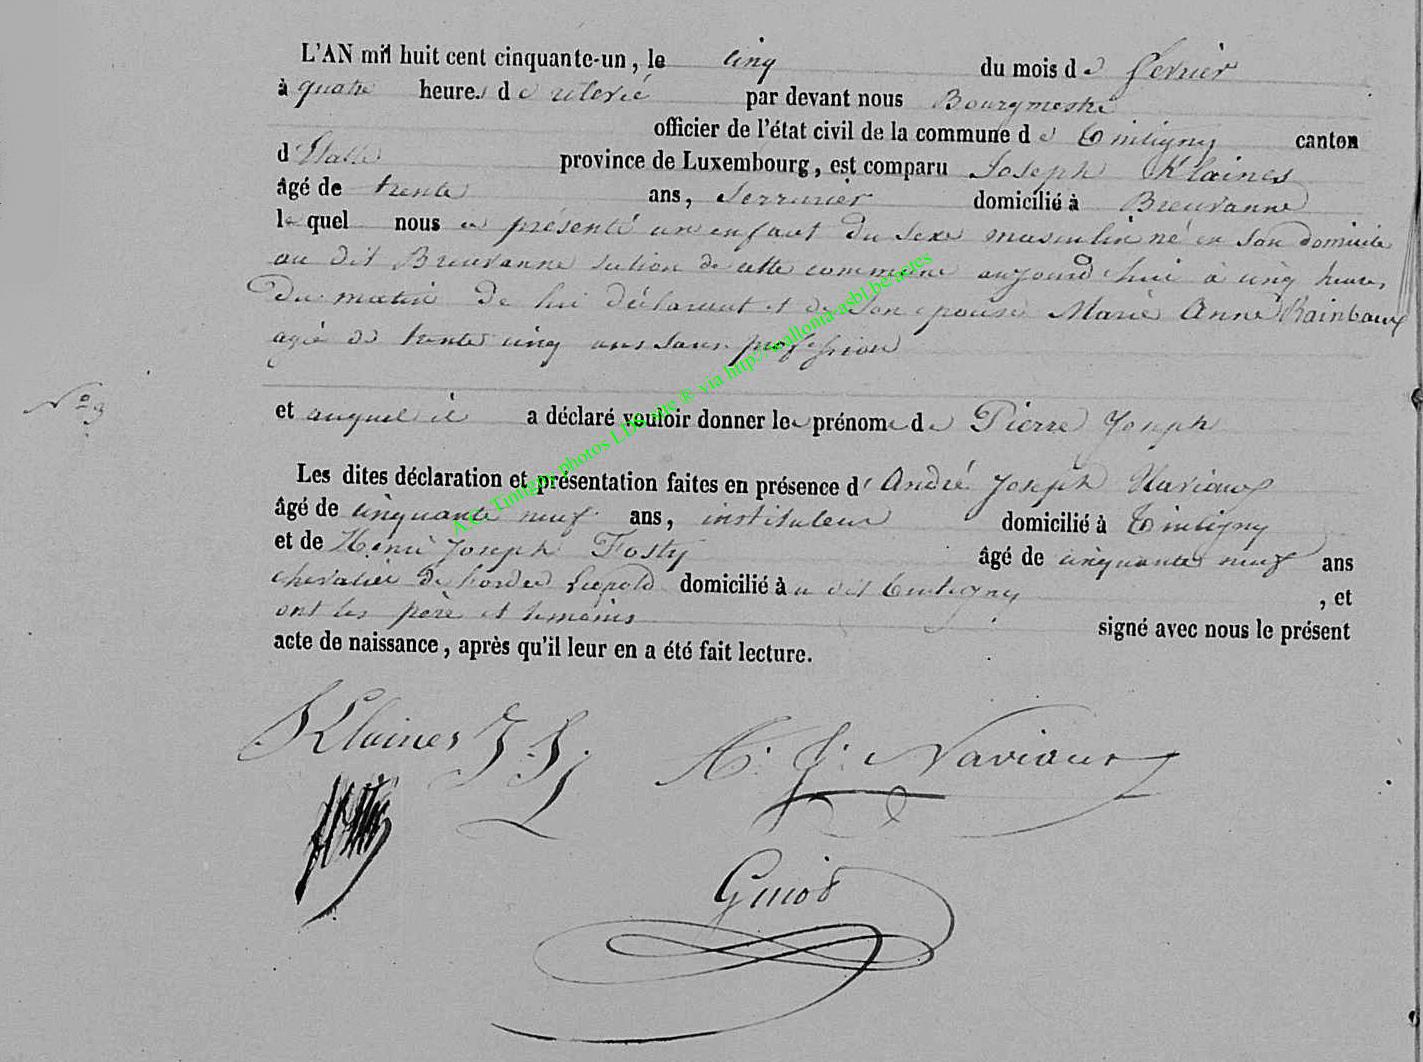 L'AN mil huit cent cinquante-un, le cinq du mois de fevrier
à quatre heures de relevé par devant nous Bourgmestre
officier de l'état civil de la commune de Tintigny canton
d'Etalle province de Luxembourg, est comparu Joseph Klaines
âgé de trente ans, Serrurier domicilié à Breuvanne
lequel nous a présenté un enfant du sexe masculin né en son domicile
au dit Breuvanne section de cette commune aujourd'hui à cinq heures
du matin de lui déclarant et de son épouse Marie Anne Rainbaux
agée de trente cinq ans sans profession
N° 3
et auquel il a déclaré vouloir donner les prénoms de Pierre Joseph
Les dites déclaration et présentation faites en présence d'André Joseph Naviaux
âgé de cinquante neuf ans, instituteur domicilié à Tintigny
et de Henri Joseph Fosty âgé de cinquante neuf ans
chevalier de l'ordre Léopold domicilié à u dit Tintigny, et
ont les père et témoins signé avec nous le présent
acte de naissance, après qu'il leur en a été fait lecture.
Klaines J. J. A. J. Naviaux